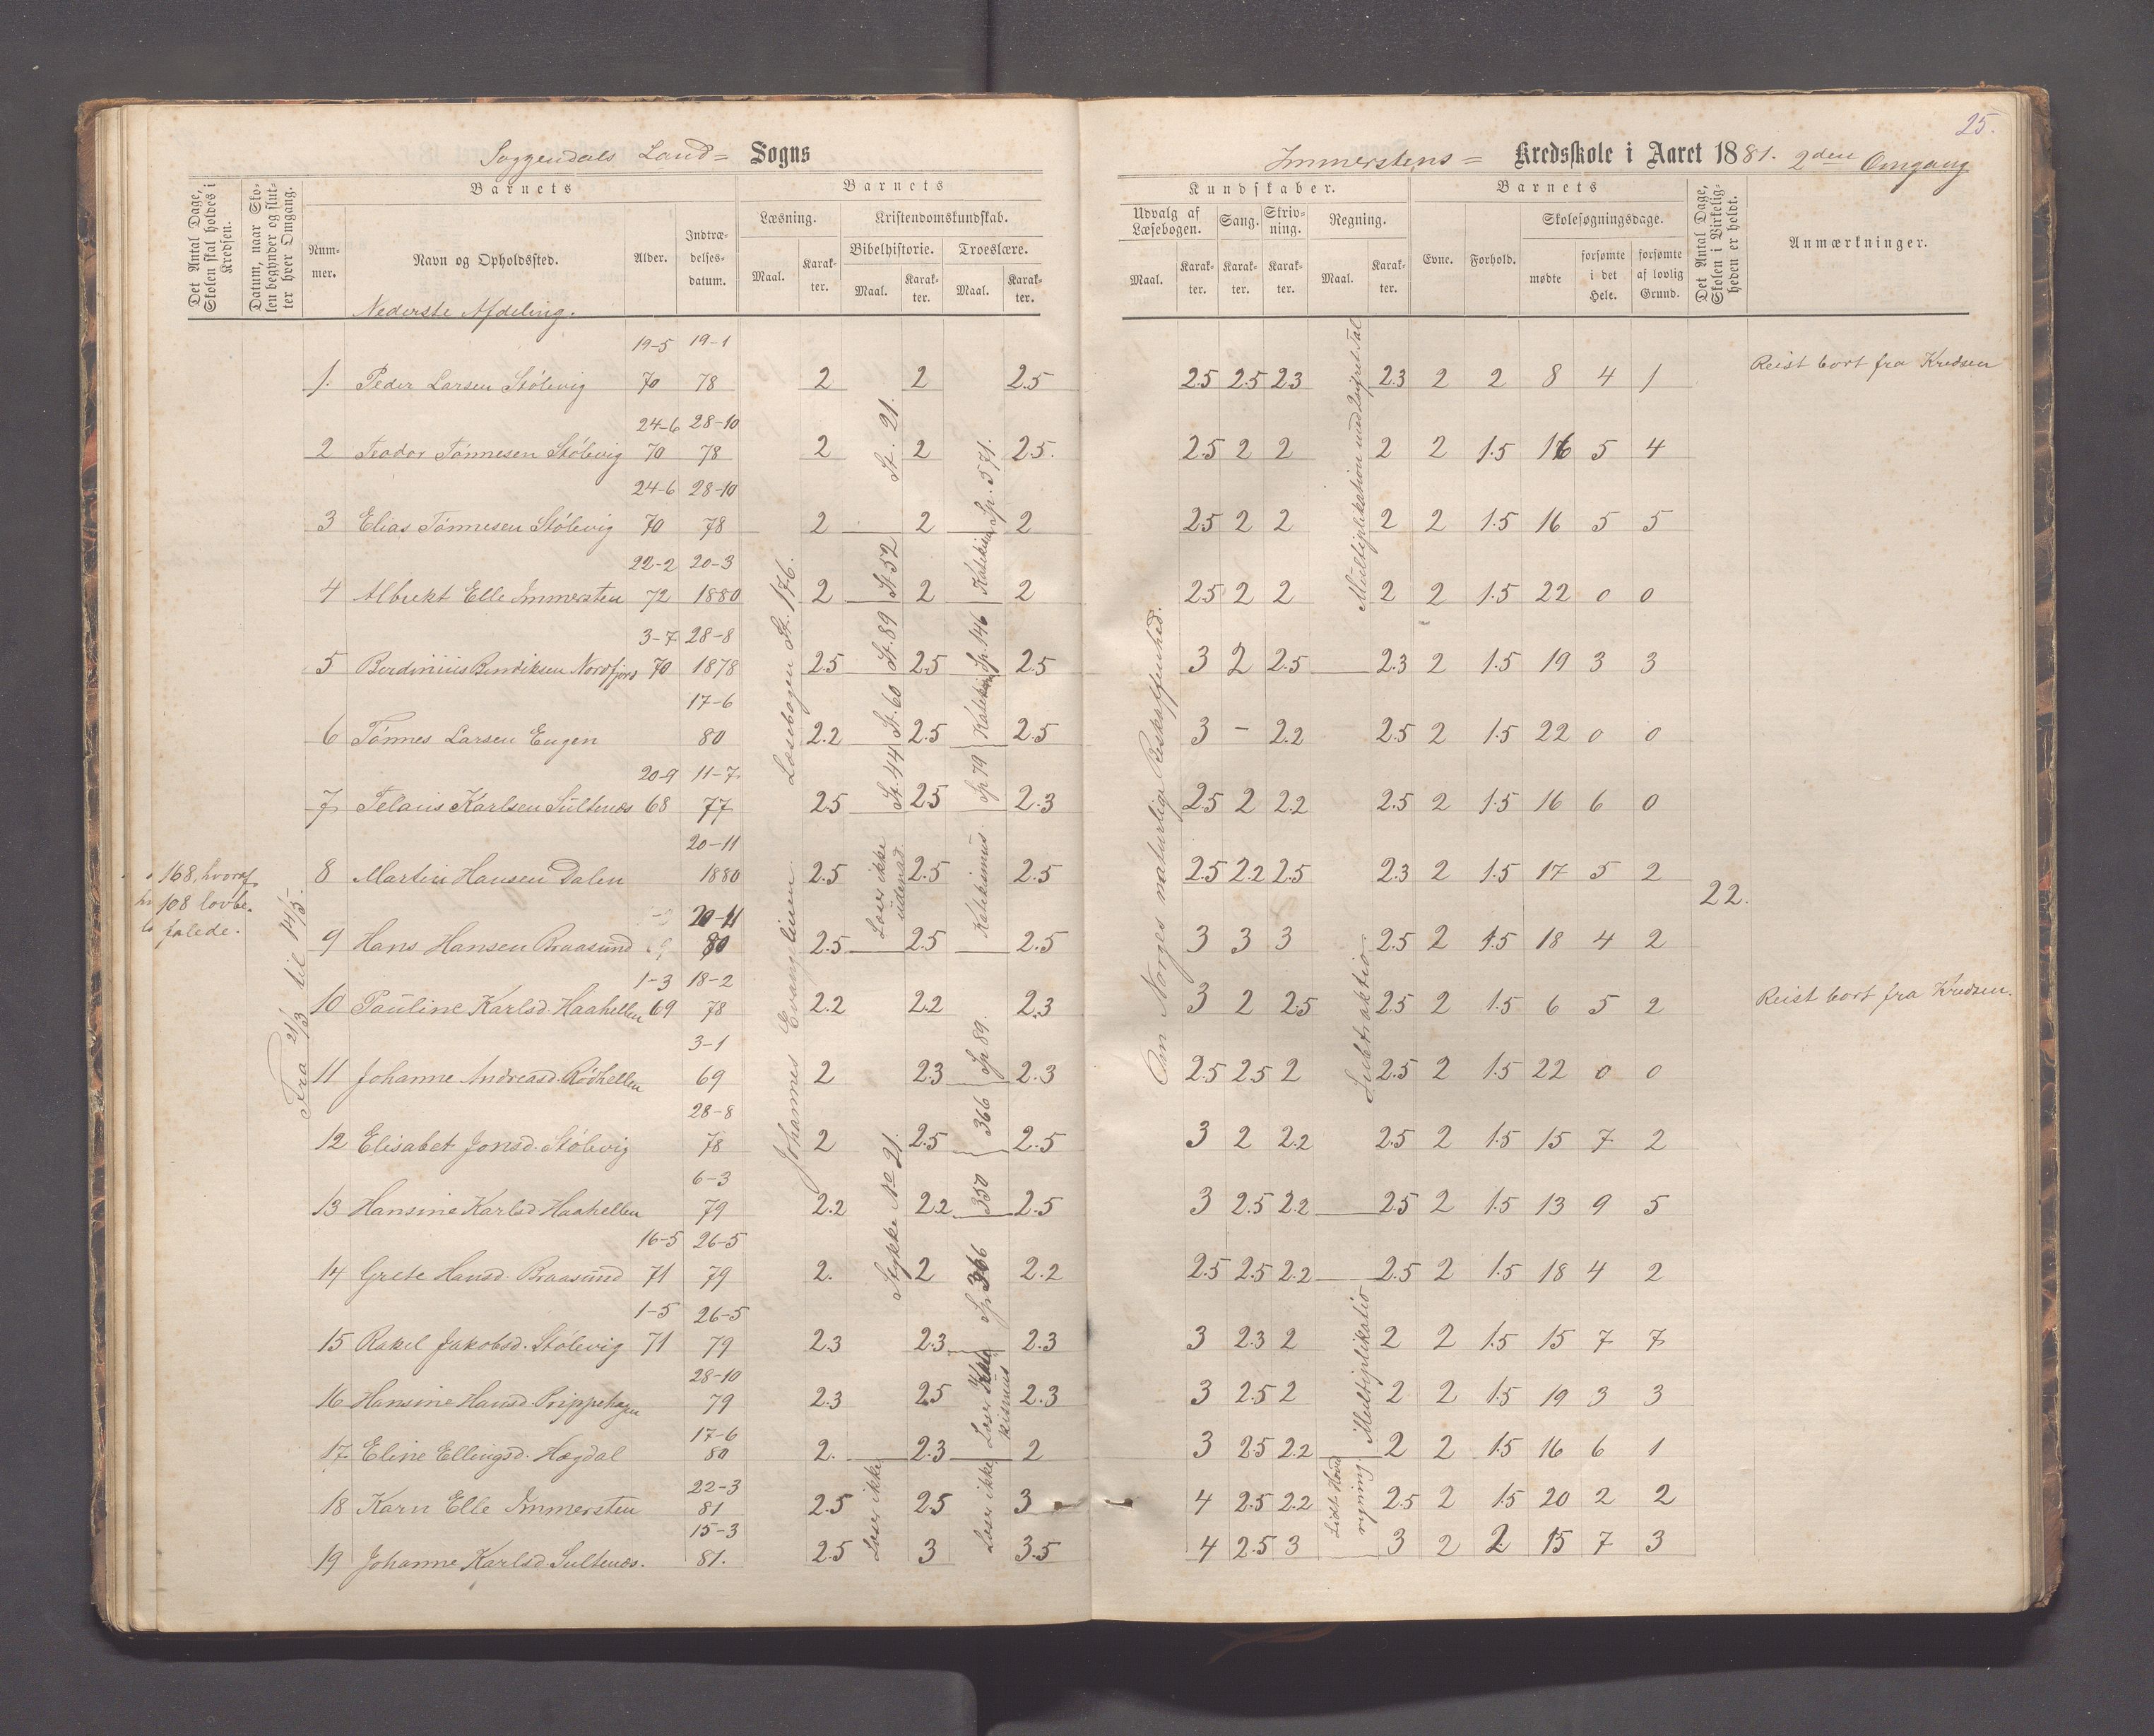 25.
Soggendals Land= Sogns
Immerstens= Kredsskole i Aaret 1881. 2den Omgang
Det Antal Dage, Skolen skal holdes i Kredsen.
Datum, naar Skolen begynder og slutter hver Omgang.
Barnets
Nummer.
Navn og Opholdssted.
Alder.
Indtrædelses-datum.
Barnets
Læsning.
Maal.
Karakter.
Kristendomskundskab.
Bibelhistorie.
Maal.
Karakter.
Troeslære.
Maal.
Karakter.
Kundskaber.
Udvalg af Læsebogen.
Maal.
Karakter.
Sang.
Karakter.
Skrivning.
Karakter.
Regning.
Maal.
Karakter.
Barnets
Evne.
Forhold.
Skolesøgningsdage.
mødte
forsømte i det Hele.
forsømte af lovlig Grund.
Det Antal Dage, Skolen i Virkeligheden er holdt.
Anmærkninger.
Nederste Afdeling.
19-5 19-1
1. Peder Larsen Stølevig 70 78 2 2 2.5 2.5 2.5 2.3 2.3 2 2 8 4 1 Reist bort fra Kredsen
24-6 28-10
2 Teodor Tönnesen Stölevig 70 78 2 2 2.5. 2.5 2 2 2 2 1.5 16 5 4
24-6 28-10
3 Elias Tönnesen Stölevig 70 78 2 2 2 2.5 2 2 2 2 1.5 16 5 5
22-2 20-3
4 Albrekt Elle Immersten 72 1880 2 2 2 2.5 2 2 2 2 1.5 22 0 0
3-7 28-8
5 Berdinius Bendiksen Nordfjord 70 1878 2.5 2.5 2.5 3 2 2.5 2.3 2 1.5 19 3 3
17-6
6 Tönnes Larsen Eugen 80 2.2 2.5 2.5 3 - 2.2 2.5 2 1.5 22 0 0
20-9 11-7
7 Telaus Karlsen Sultenæs 68 77 2.5 2.5 2.3 2.5 2 2.2 2.5 2 1.5 16 6 0
20-11
8 Martin Hansen Dalen 1880 2.5 2.5 2.5 2.5 2.2 2.5 2.3 2 1.5 17 5 2
20-11
9 Hans Hansen Braasund 69 80 2.5 2.5 2.5 3 3 3 2.5 2 1.5 18 4 2
1-3 18-2
10 Pauline Karlsd. Haahellen 69 78 2.2 2.2 2.3 3 2 2.5 2.5 2 1.5 6 5 2 Reist bort fra Kredsen.
3-1
11 Johanne Andreasd. Rödhellen 69 2 2.3 2.3 2.5 2.5 2 2.5 2 1.5 22 0 0
28-8
12 Elisabet Jonsd. Stölevig 78 2 2.5 2.5 3 2 2.2 2.5 2 1.5 15 7 2
6-3
13 Hansine Karlsd. Haahellen 79 2.2 2.2 2.5 3 2.5 2.2 2.5 2 1.5 13 9 5
16-5 26-5
14 Grete Hansd. Braasund 71 79 2. 2 2.2 2.5 2.5 2.2 2.5 2 1.5 18 4 2
1-5 26-5
15 Rakel Jakobsd. Stölevig 71 79 2.3 2.3 2.3 3 2.3 2 2 2 1.5 15 7 7
28-10
16 Hansine Hansd. Prippehagen 79 2.3 2.5 2.3 3 2.5 2 2 2 1.5 19 3 3
17-6
17 Eline Ellingsd. Hægdal 80 2. 2.3 2 3 2.5 2.2 2 2 1.5 16 6 1
22-3
18 Karn Elle Immersten 81 2.5 2.5 3 4 2.5 2.2 2.5 2 1.5 20 2 2
15-3
19 Johanne Karlsd. Sultenæs. 81. 2.5 3 3.5 4 2.5 3 3 2 2 15 7 3
168, hvoraf
108 lovbe-
falede.
Fra 21/3 til 14/5.
Johannes Evangelium
Læsebogen St. 176.
St. 21.
St. 52
St. 89
St. 60
St. 44
Læser ikke udenad
Stykke No 21.
Læser ikke
Sp. 571.
Katekism
Sp. 146
Katekism
Sp 79
Katekismus.
Sp 89.
366
350
Sp. 366
Læser Katekismus
Læser ikke
Om Norges naturlige Beskaffenhed.
Multiplikation med 2cifret Tal
Subtraktion
Multiplikation
Lidt Hovedregning.
22.